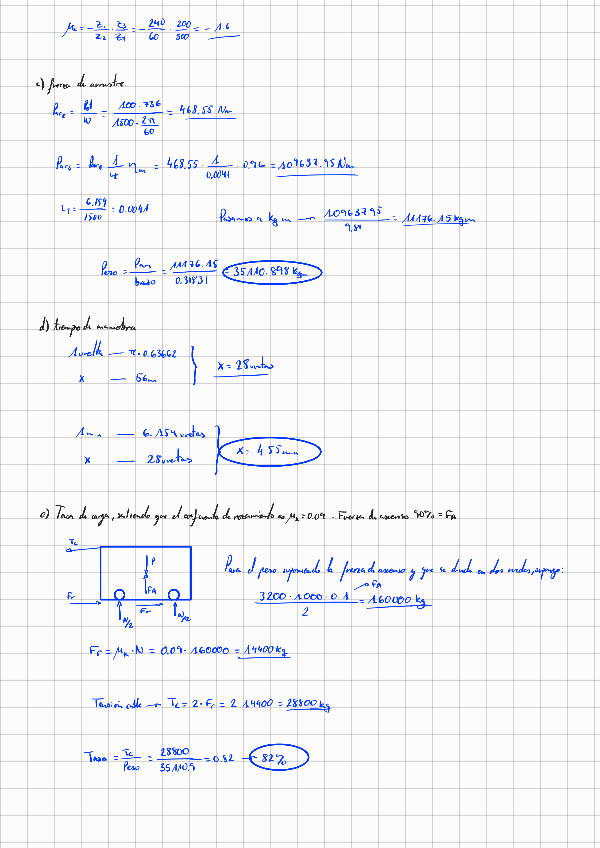 μ₂ = - Z₁/Z₂ · Z₃/Z₄ = - 240/60 · 200/500 = - 1.6
c) fuerza de arrastre
Par_E = Pot/W = 100 · 736 / 1500 · 2π/60 = 468.55 Nm
Par_S = Par_E · 1/i_T · η_m = 468.55 · 1/0.0041 · 0.96 = 109637.95 Nm
i_T = 6.154/1500 = 0.0041
Pasamos a kg m → 109637.95/9.81 = 11176.15 kgm
Peso = Par_S/brazo = 11176.15/0.31831 = 35110.898 kg
d) tiempo de maniobra
1 vuelta — π · 0.63662
x — 56m
x = 28 vueltas
1 min — 6.154 vueltas
x — 28 vueltas
x = 4.55 min
e) Tasa de carga, sabiendo que el coeficiente de rozamiento es μ_k = 0.09. Fuerza de ascenso 90% = F_A
T_c
P
F_A
F_r
F_r
N/2
N/2
Para el peso suponiendo la fuerza de ascenso y que se divide en dos ruedas, supongo:
F_A
3200 · 1000 · 0.1 / 2 = 160000 kg
F_r = μ_k · N = 0.09 · 160000 = 14400 kg
Tensión cable → T_c = 2 · F_r = 2 · 14400 = 28800 kg
Tasa = T_c/Peso = 28800/35110.9 = 0.82 → 82%